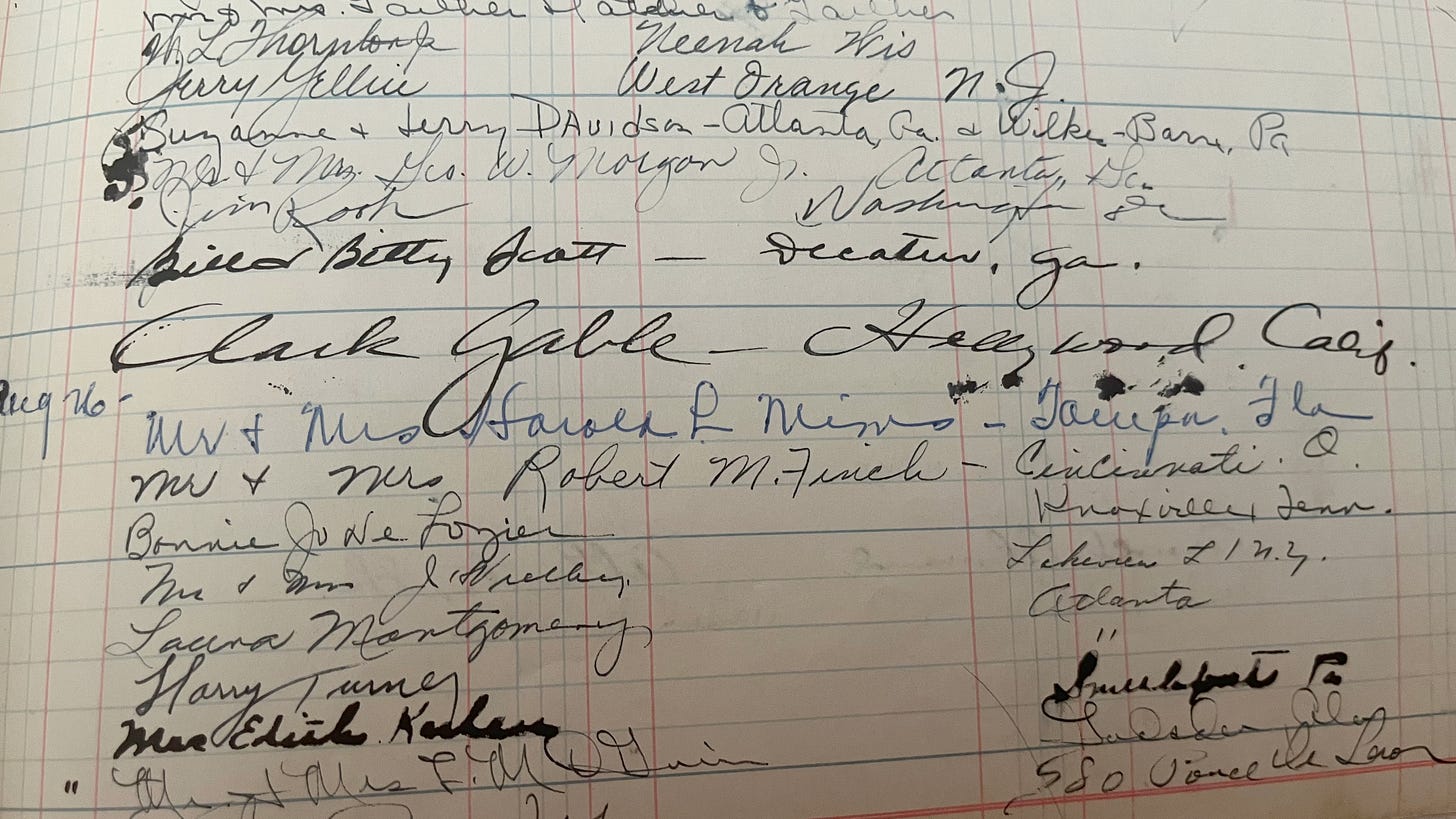 Mr & Mrs. Gaither
W. L. Thornton Jr Neenah Wis
Jerry Yellin West Orange N.J.
Suzanne & Jerry Davidson - Atlanta, Ga. & Wilkes-Barre, Pa
Mr & Mrs. Geo. W. Morgan Jr. Atlanta, Ga.
Jim Washington DC
Bill & Betty Scott — Decatur, Ga.
Clark Gable — Hollywood Calif.
Aug 26 - Mr & Mrs Harold L Mims - Tampa, Fla
Mr & Mrs Robert M. Finch - Cincinnati. O.
Bonnie Jo De Lozier Knoxville, Tenn.
Mr & Mrs J. Lakeview L I N.Y.
Laura Montgomery Atlanta
Harry Turner "
Mrs Edith Pa
" Mr. & Mrs 580 Ponce de Leon